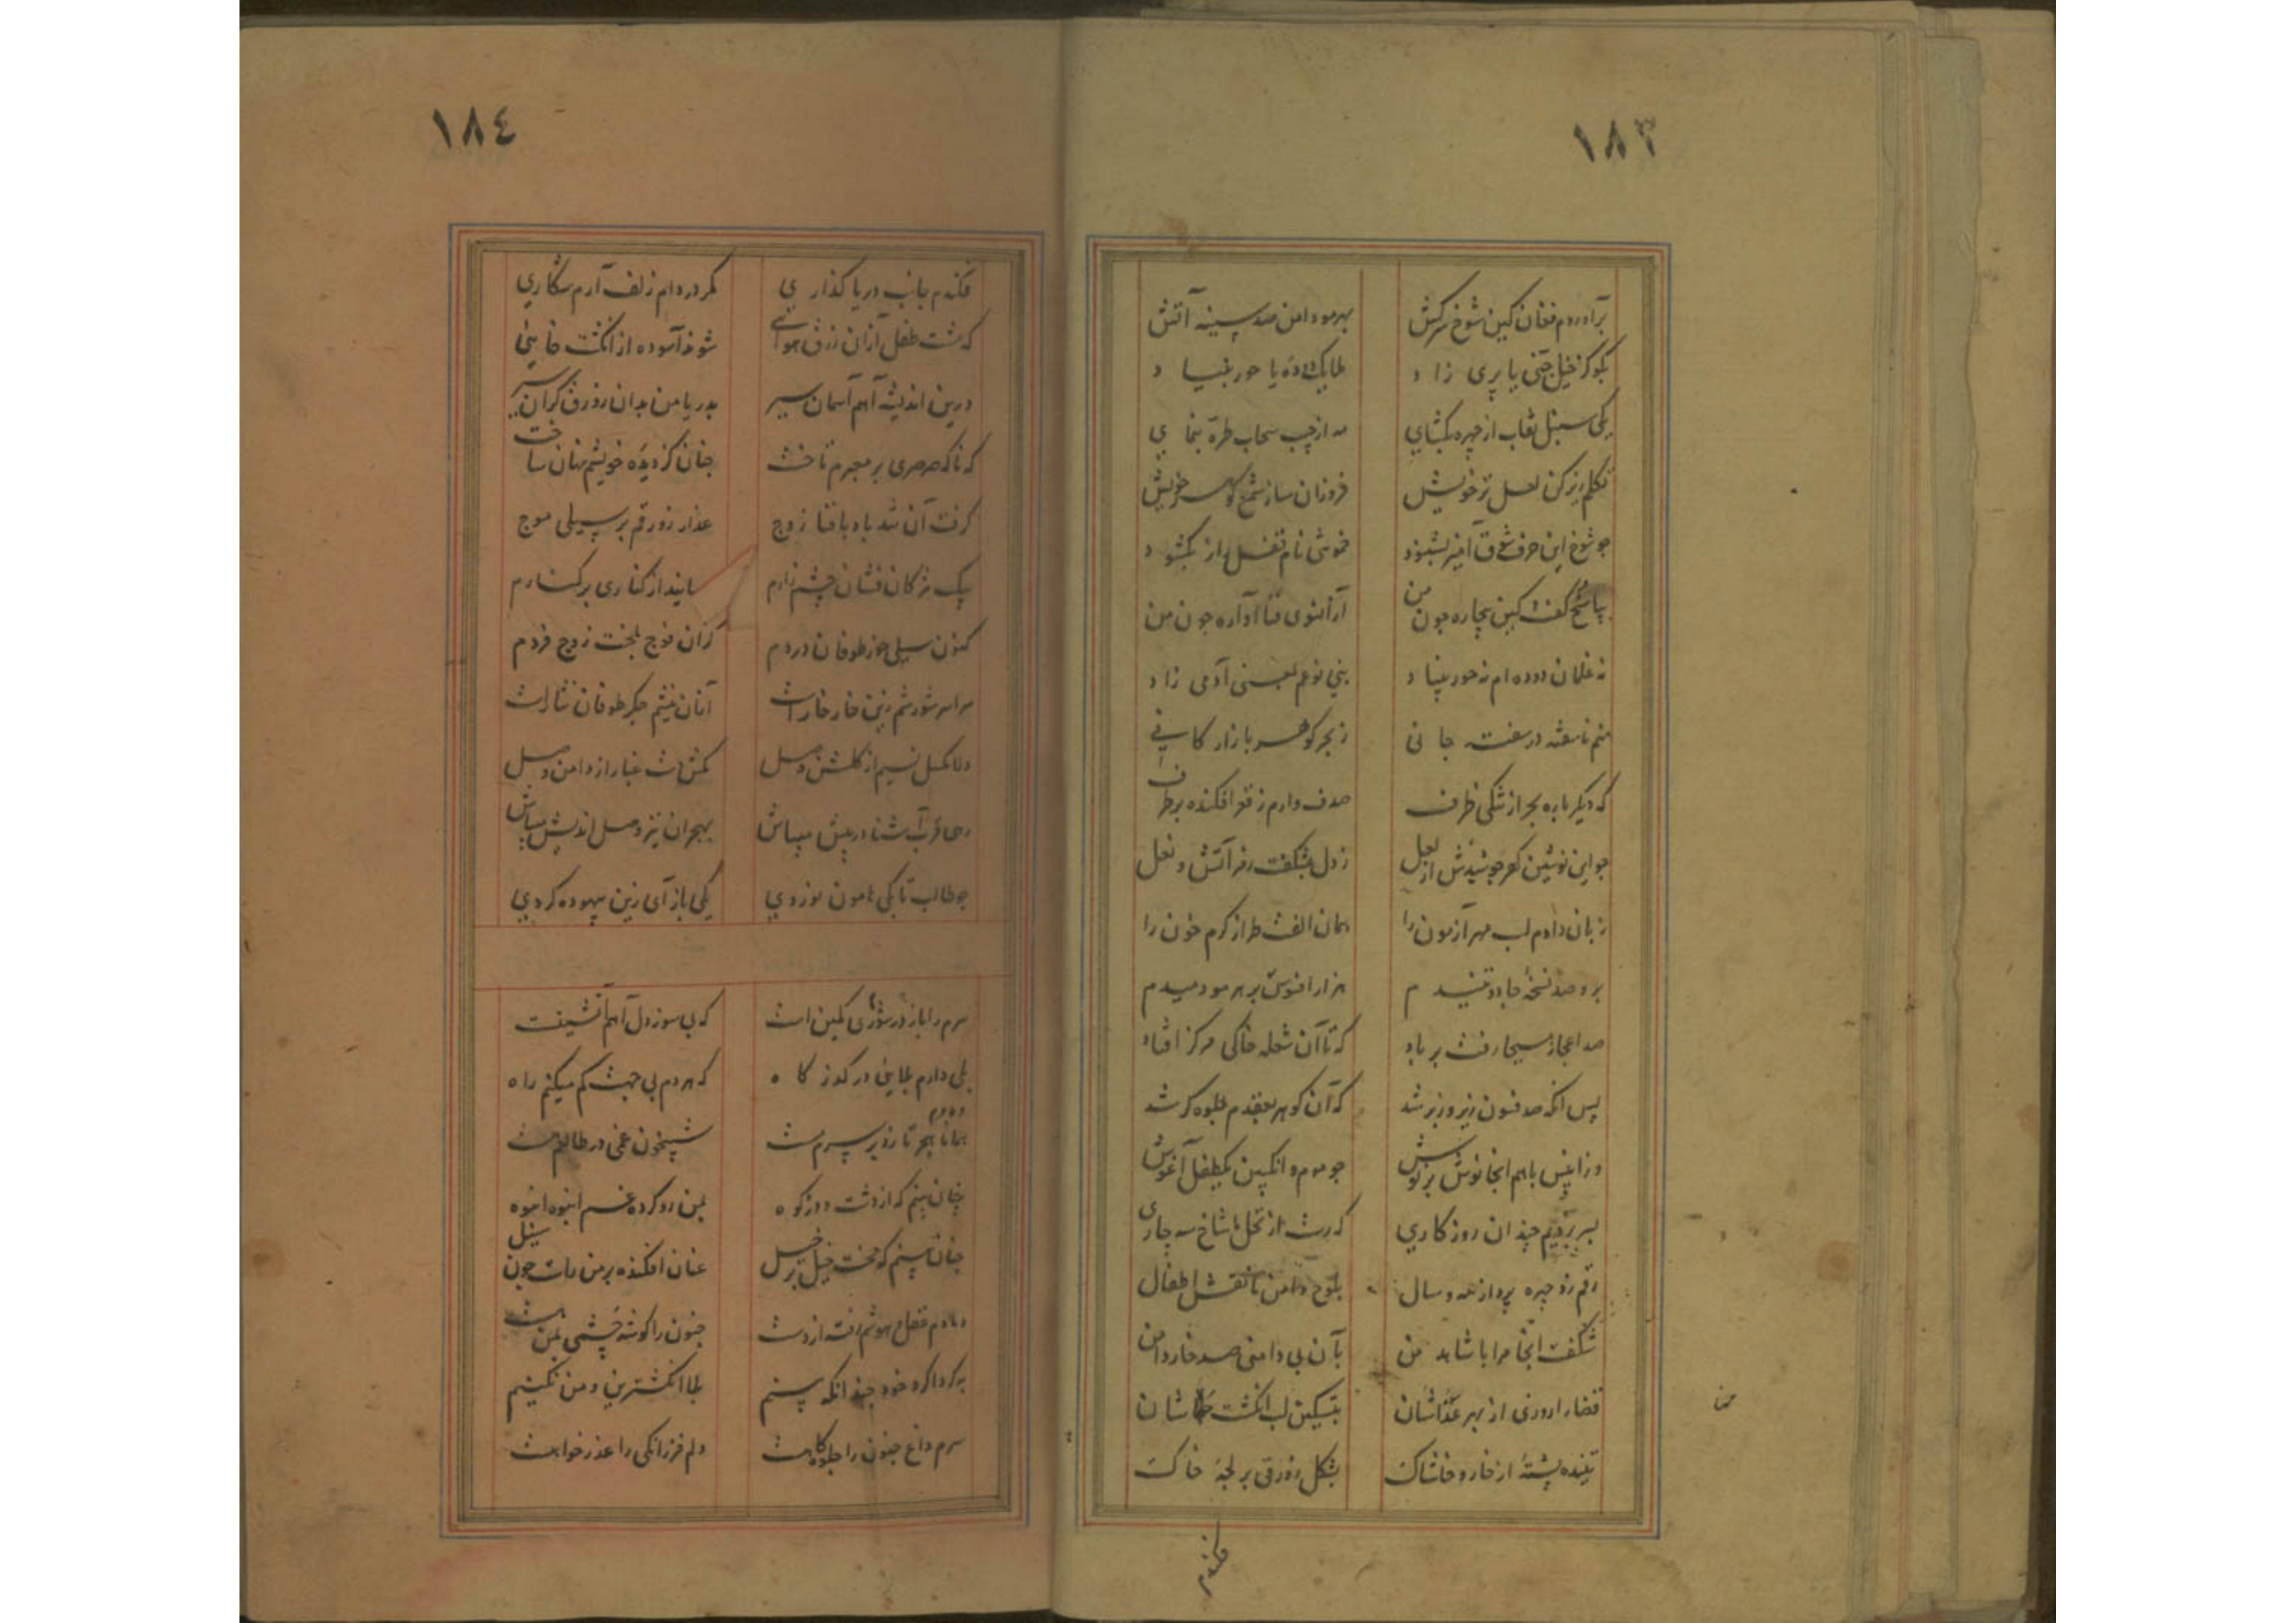 ١٨٣
برآوردم فغان کین شوخ سرکش بهر مو دامن صد سینه آتش
بگو کز خیل جنی یا پری زاد ملایک دوده یا حور بنیاد
یکی سنبل نقاب از چهره بگشای مه از جیب سحاب طره بنمای
تکلم ریز کن لعل تر خویش فروزان ساز شمع گوهر خویش
جو شوخ این حرف شوق آمیز بشنود خموشی نام قفل از بگشود
پاسخ گفت کین بیچاره چون من از آنسوی فنا آواره جون من
نه غلمان دوده ام نه حور بنیاد بنی نوعم بمعنی آدمی زاد
منم ناسفته در سفت جانی ز بحر گوهر بازار کانی
که دیگر باره بحر از تنگی ظرف صدف وارم ز قعر افکنده بر طرف
جو این نوشین گهر جوشیدش از لعل ز دل بشکفت رفر آتش و نعل
زبان دادم لب مهر آزمون را همان الفت طراز گرم خون را
برو صد نسخهٔ جادو تنیدم هزار افسوس بر هر مو دمیدم
صد اعجاز مسیحا رفت بر باد که تا آن شعله خاکی مرکز افتاد
پس انگه صد فسون زیر و زبر شد که آن گوهر بعقدم جلوه گر شد
وزا پس باهم انجا نوش بر نوش جو موم و انگبین یکطفل آغوش
بسر بردیم چندان روزگاری که رست از نخل ما شاخ سه چاری
رقم زد چهره پرداز مه و سال بلوح دامن ما نقش اطفال
شکفت انجا مرا با شاهد من بآن بی دامنی صد خار دامن
قضا را روزی از بهر غذاشان بتسکین لب انگشت خاشان
تنیده پشتهٔ از خار و خاشاک بشکل زورقی بر لجهٔ خاک
فکندم
١٨٤
فکندم جانب دریا گذاری مگر در دام زلف آرم شکاری
که مشت طفل از آن رزق هوائی شوند آسوده از انگشت خایی
درین اندیشه آهم آسمان سیر بدریا من بدان زورق گران سیر
که ناگه صرصری بر معبرم تاخت جنان کز دیده خویشم نهان ساخت
گرفت آن تند باد با فنا زوج عذار زورقم بر سیلی موج
بیک مژگان فشان چشم زارم رسانید از کناری بر کنارم
کنون سیلی خور طوفان دردم کزان فوج بخت زوج فردم
سراسر شورشم زین خار خار است ازان نیشم جگر طوفان نثار است
دلا مگسل نسیم از گلشن وصل مکش دست غبار از دامن وصل
رهی قرب آشنا درپیش میباش بهجران نیز وصل اندیش میباش
جو طالب تا بکی هامون نوردی یکی باز آی زین بیهوده گردی
سرم را باز در شوری کمین است که بی سوز دل آهم آتشین است
بلی دارم بلایی در گذرگاه که هر دم بی جهت گم میکنم راه
همانا هجر تازه بر سرم هست شبیخون غمی در طالعم هست
چنان بینم که از دشت و در و کوه بمن رو کرده غم انبوه انبوه
جنان بینم که محنت خیل بر خیل عنان افکنده بر من راست جون سیل
دمادم عقل و هوشم رفته از دست جنون را گوشه چشمی بمن هست
بگرداگرد خود چندانکه بینم بلا انگشترین و من نگینم
سرم داغ جنون را جلوه گاهست دلم فرزانگی را عذر خواهست